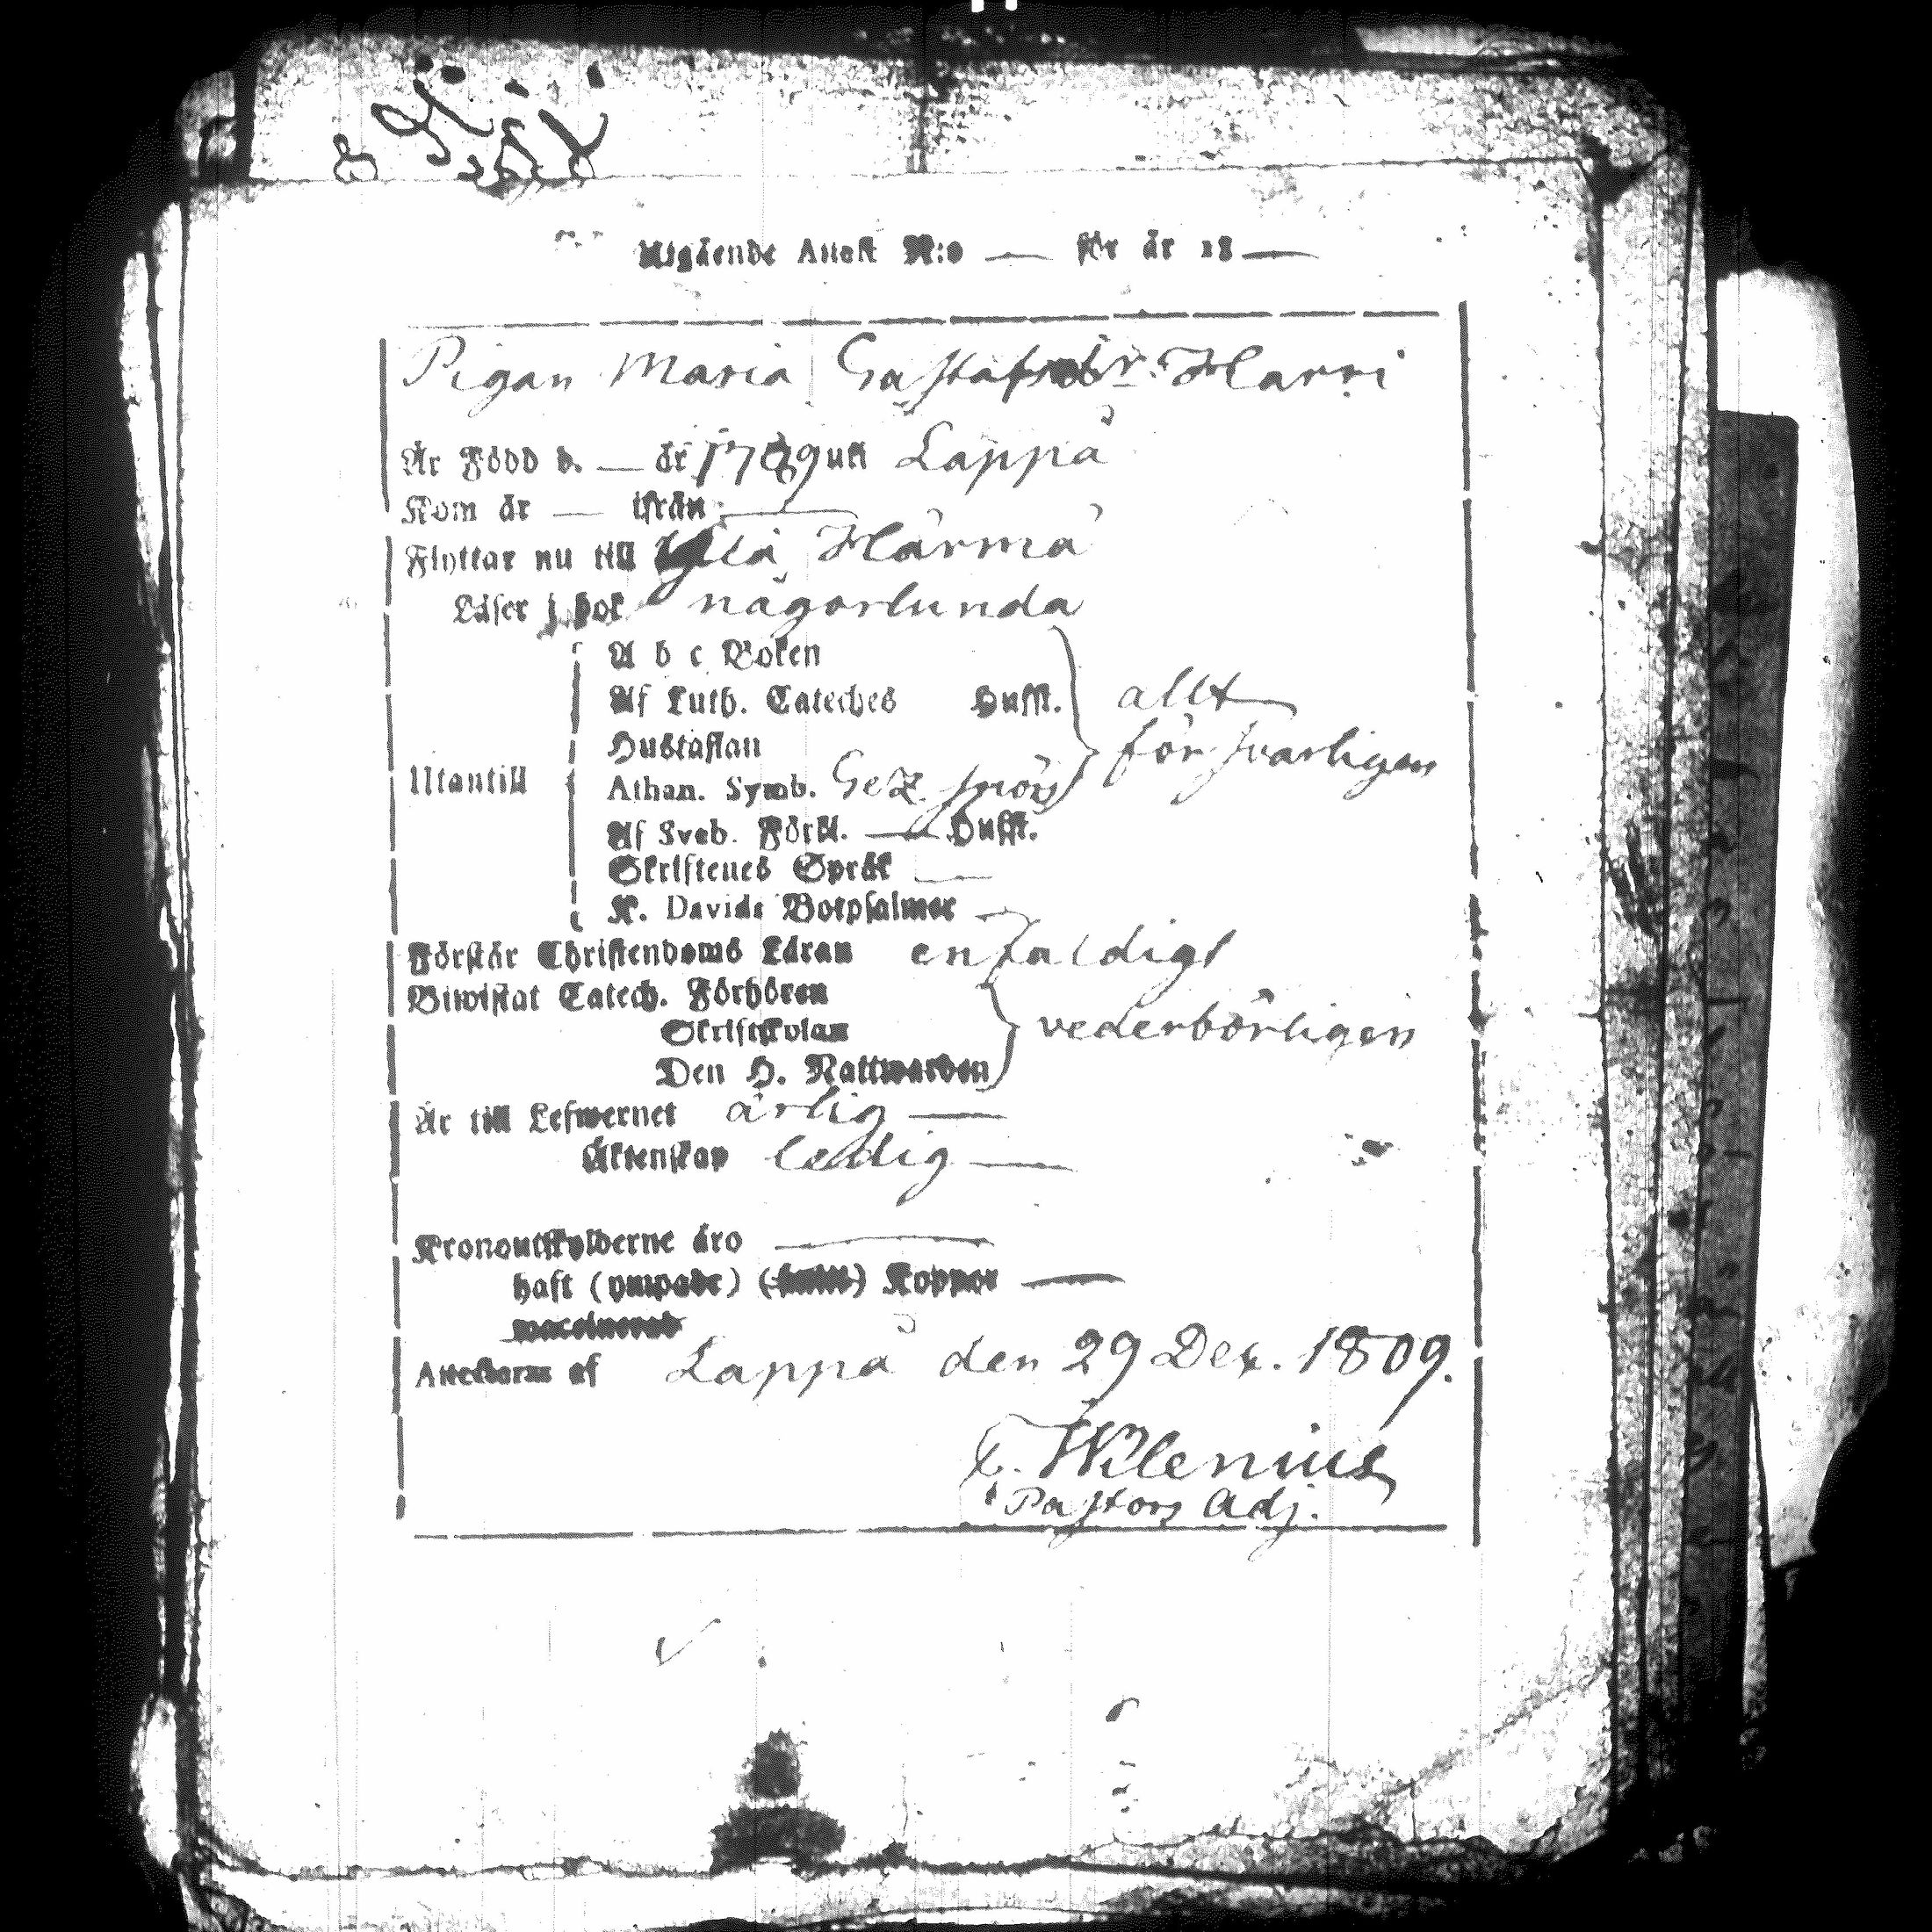 Utgående Attest N:o — för år 18 —
Pigan Maria Gustafsdr. Harri
Är Född d. — år 1789 uti Lappå
Kom år — ifrån —
Flyttar nu till Yliä Härmä
Läser i bok någorlunda
A b c Boken
Af Luth. Cateches Hufst. allt
Hustaflan försvarligen
Utantill Athan. Symb. Gez. spörs
Af Sveb. Förkl. — Hufst.
Skriftenes Språk —
K. Davids Botpsalmer —
Förstår Christendoms Läran enfaldigt
Biwistat Catech. Förhören
Skriftskolan vederbörligen
Den H. Nattwarden
Är till Lefwernet ärlig —
Äktenskap ledig —
Kronoutskylderne äro —
haft (ympade) Koppor —
Attesteras af Lappå den 29 Dec. 1809.
Wilenius
Pastors Adj.